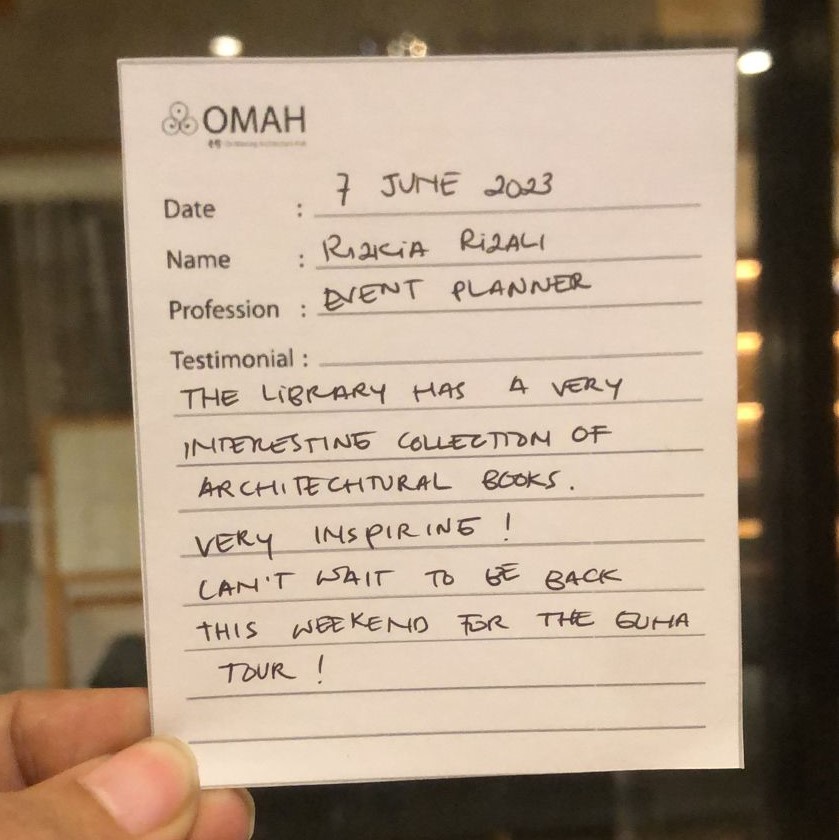 OMAH
Date : 7 JUNE 2023
Name : RIZKIA RIZALI
Profession : EVENT PLANNER
Testimonial :
THE LIBRARY HAS A VERY
INTERESTING COLLECTION OF
ARCHITECHTURAL BOOKS.
VERY INSPIRING !
CAN'T WAIT TO BE BACK
THIS WEEKEND FOR THE GUHA
TOUR !